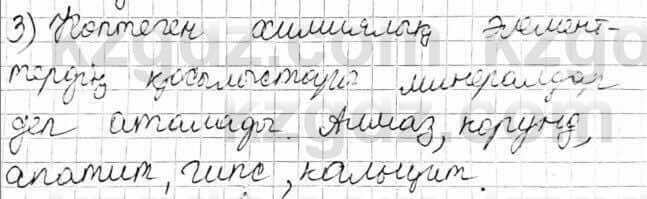 3) Көптеген химиялық элемент-
тердің қосылыстары минералдар
деп аталады. Алмаз, корунд,
апатит, гипс, кальцит.